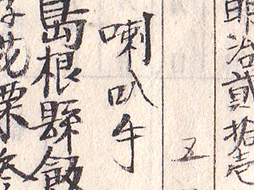 明治貳拾壱
五
喇叭手
島根縣飯
花栗